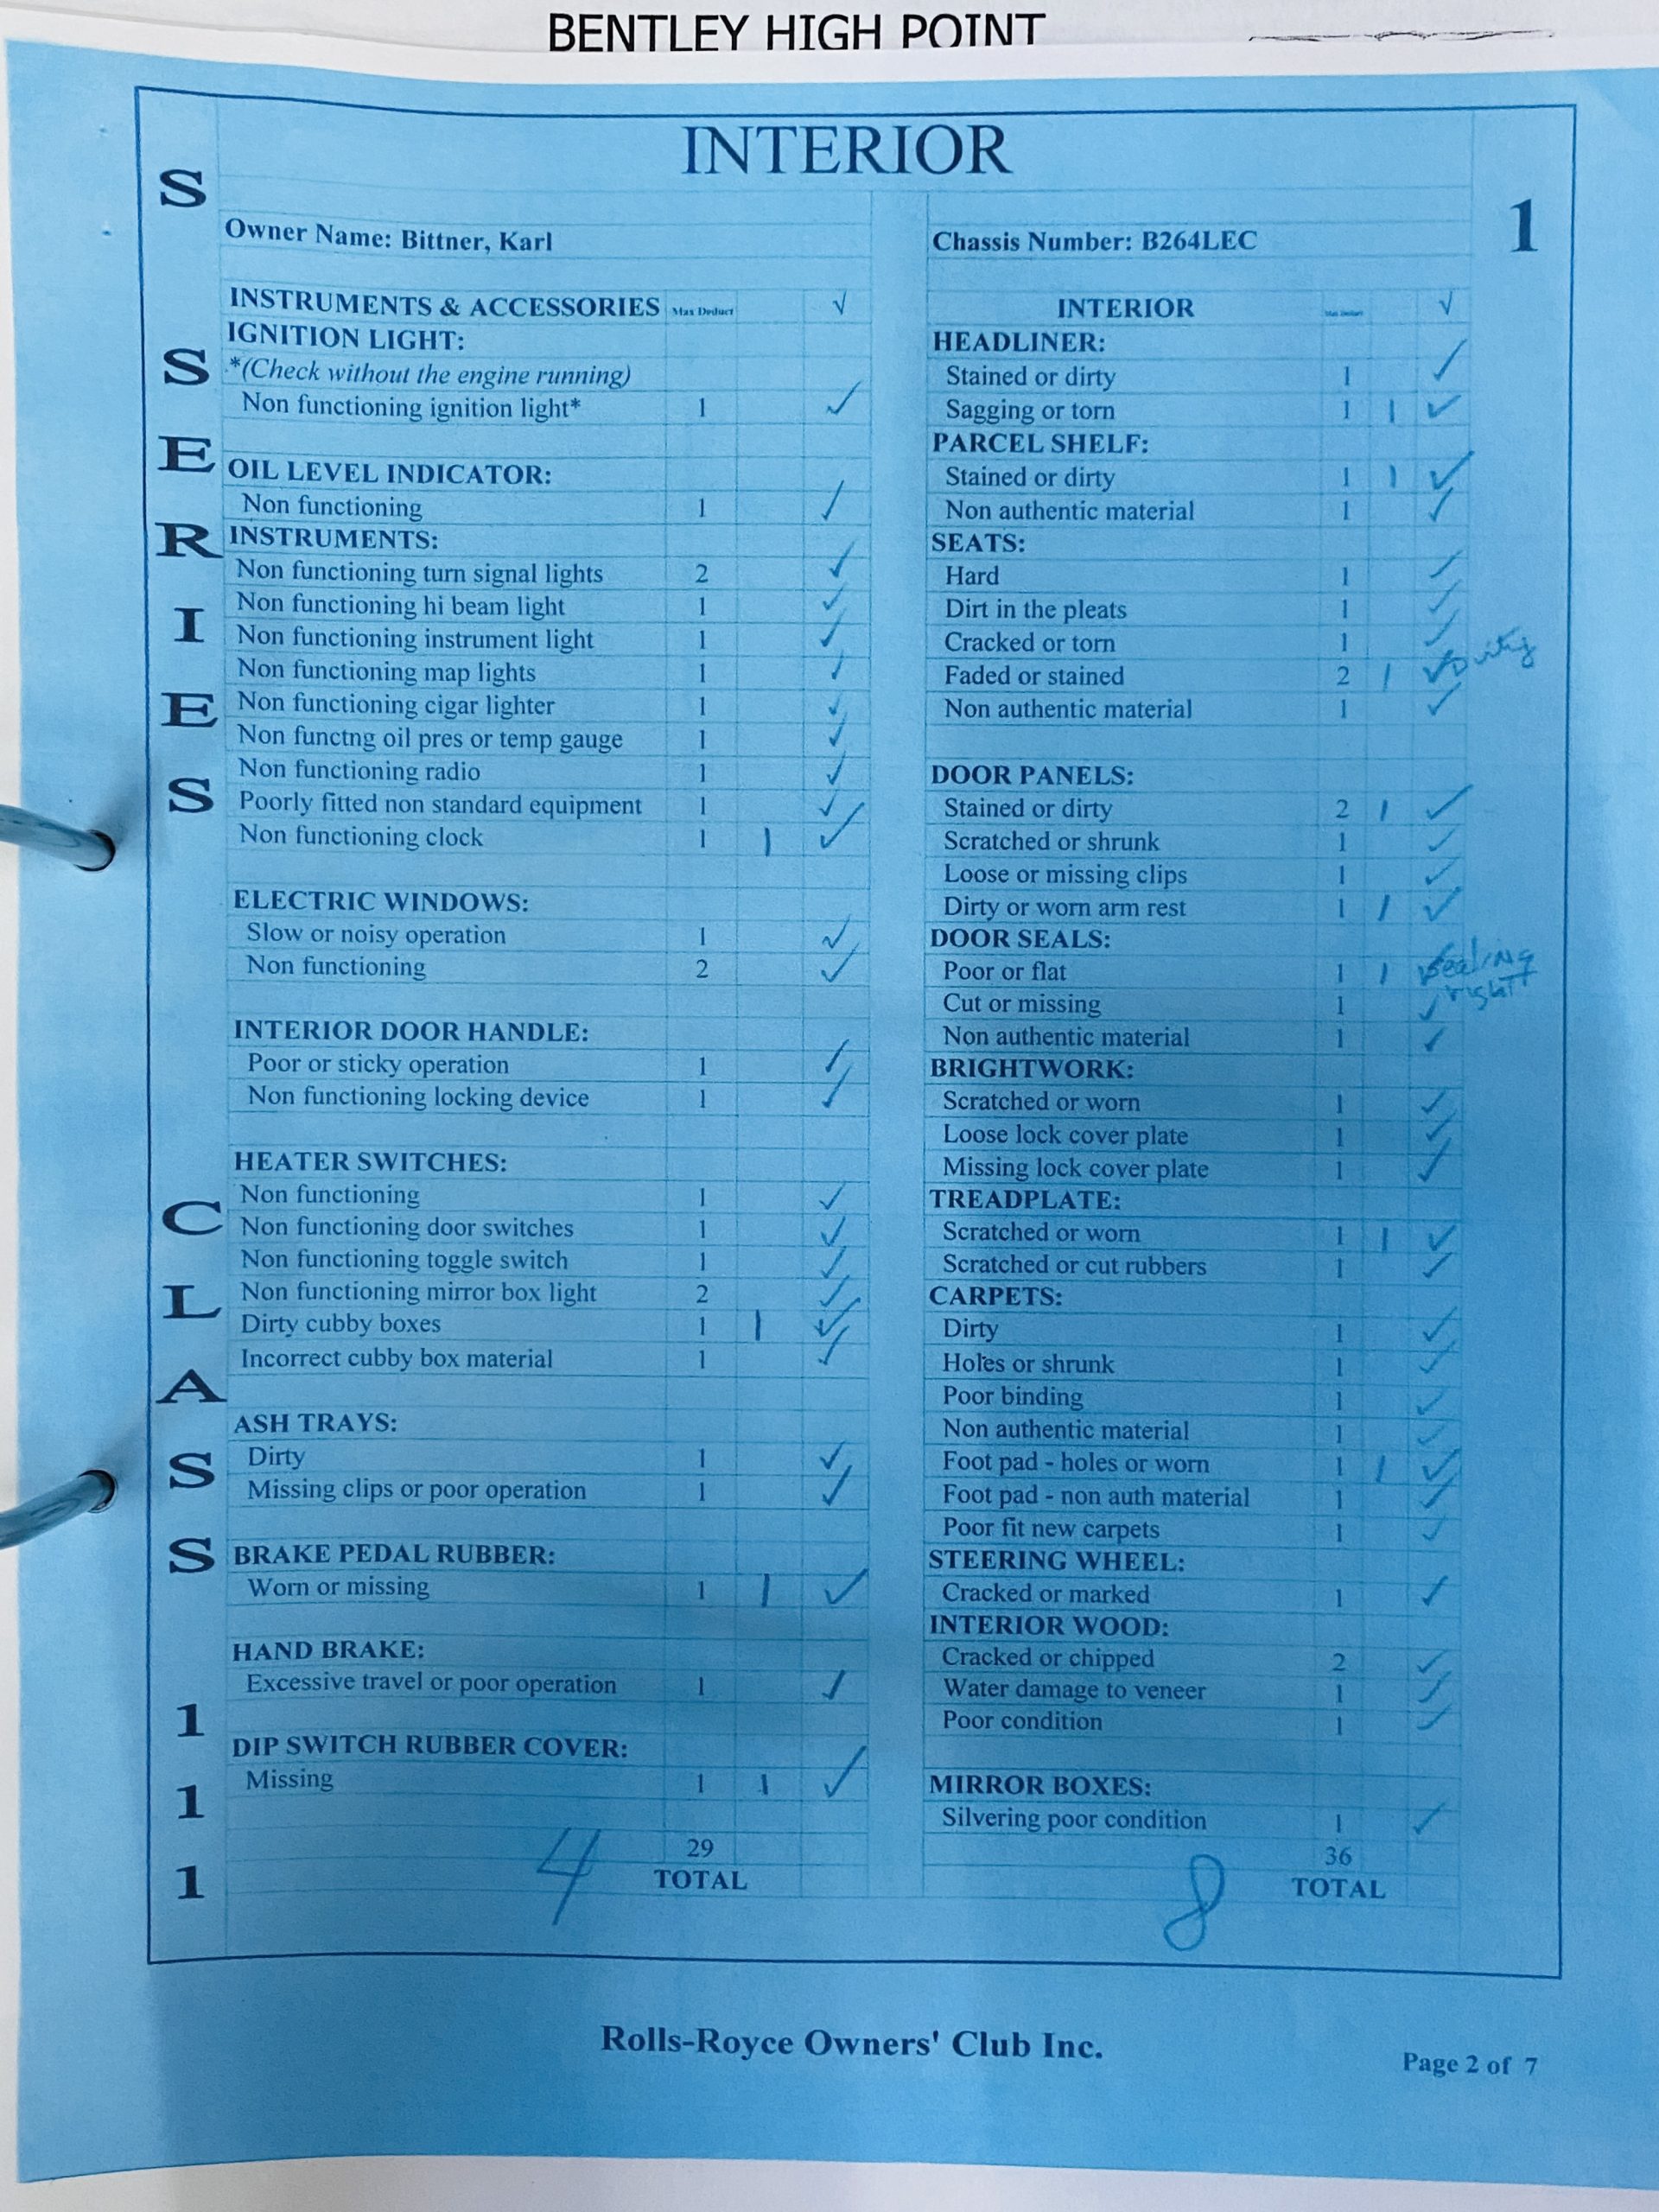 BENTLEY HIGH POINT
INTERIOR
1
S SERIES CLASS 111
Owner Name: Bittner, Karl
INSTRUMENTS & ACCESSORIES Max Deduct √
IGNITION LIGHT:
*(Check without the engine running)
Non functioning ignition light* 1 ✓
OIL LEVEL INDICATOR:
Non functioning 1 ✓
INSTRUMENTS:
Non functioning turn signal lights 2 ✓
Non functioning hi beam light 1 ✓
Non functioning instrument light 1 ✓
Non functioning map lights 1 ✓
Non functioning cigar lighter 1 ✓
Non functng oil pres or temp gauge 1 ✓
Non functioning radio 1 ✓
Poorly fitted non standard equipment 1 ✓
Non functioning clock 1 1 ✓
ELECTRIC WINDOWS:
Slow or noisy operation 1 ✓
Non functioning 2 ✓
INTERIOR DOOR HANDLE:
Poor or sticky operation 1 ✓
Non functioning locking device 1 ✓
HEATER SWITCHES:
Non functioning 1 ✓
Non functioning door switches 1 ✓
Non functioning toggle switch 1 ✓
Non functioning mirror box light 2 ✓
Dirty cubby boxes 1 1 ✓
Incorrect cubby box material 1 ✓
ASH TRAYS:
Dirty 1 ✓
Missing clips or poor operation 1 ✓
BRAKE PEDAL RUBBER:
Worn or missing 1 1 ✓
HAND BRAKE:
Excessive travel or poor operation 1 ✓
DIP SWITCH RUBBER COVER:
Missing 1 1 ✓
29
4 TOTAL
Chassis Number: B264LEC
INTERIOR Max Deduct √
HEADLINER:
Stained or dirty 1 ✓
Sagging or torn 1 1 ✓
PARCEL SHELF:
Stained or dirty 1 1 ✓
Non authentic material 1 ✓
SEATS:
Hard 1 ✓
Dirt in the pleats 1 ✓
Cracked or torn 1 ✓
Faded or stained 2 1 ✓
Non authentic material 1 ✓
DOOR PANELS:
Stained or dirty 2 1 ✓
Scratched or shrunk 1 ✓
Loose or missing clips 1 ✓
Dirty or worn arm rest 1 1 ✓
DOOR SEALS:
Poor or flat 1 1 ✓
Cut or missing 1 ✓ right
Non authentic material 1 ✓
BRIGHTWORK:
Scratched or worn 1 ✓
Loose lock cover plate 1 ✓
Missing lock cover plate 1 ✓
TREADPLATE:
Scratched or worn 1 1 ✓
Scratched or cut rubbers 1 ✓
CARPETS:
Dirty 1 ✓
Holes or shrunk 1 ✓
Poor binding 1 ✓
Non authentic material 1 ✓
Foot pad - holes or worn 1 1 ✓
Foot pad - non auth material 1 ✓
Poor fit new carpets 1 ✓
STEERING WHEEL:
Cracked or marked 1 ✓
INTERIOR WOOD:
Cracked or chipped 2 ✓
Water damage to veneer 1 ✓
Poor condition 1 ✓
MIRROR BOXES:
Silvering poor condition 1 ✓
36
8 TOTAL
Rolls-Royce Owners' Club Inc.
Page 2 of 7